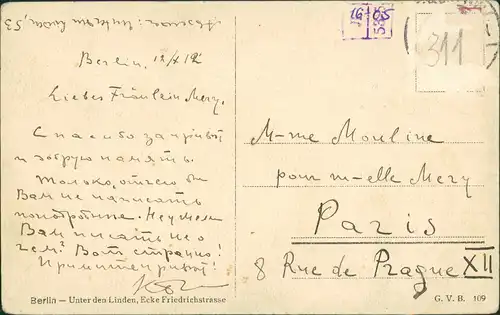 Absender:
Berlin, 12/X 12
Liebes Fräulein Mery,
Спасибо за привет
и добрую память.
Только, отчего бы
Вам не написать
подробнее. Неужели
Вам писать не о
чем? Вот странно!
Примите привет!
Berlin – Unter den Linden, Ecke Friedrichstrasse
16 05
311
M-me Mouline
pour m-elle Mery
Paris
8 Rue de Prague XII
G. V. B. 109